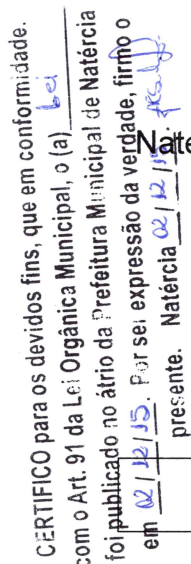 CERTIFICO para os devidos fins, que em conformidade.
com o Art. 91 da Lei Orgânica Municipal, o (a) Lei
foi publicado no átrio da Prefeitura Municipal de Natércia
em 02/12/15. Por ser expressão da verdade, firmo o
presente. Natércia 02/12/15
Norte